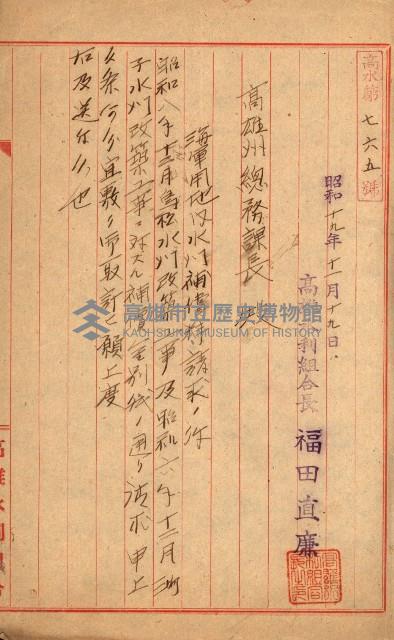 高水第七六五號
昭和十九年十一月十九日
高雄水利組合長 福田直廉
高雄州總務課長 殿
海軍用地內水川補償料請求ノ件
昭和八年十二月鳥松水川改築工事及昭和六年十二月
子水川改築工事ニ對スル補償 別紙ノ通リ請求申上
候條何分宜敷 御取計 願上度
右及送付候也
高雄市立歷史博物館
KAOHSIUNG MUSEUM OF HISTORY
高雄水利組合